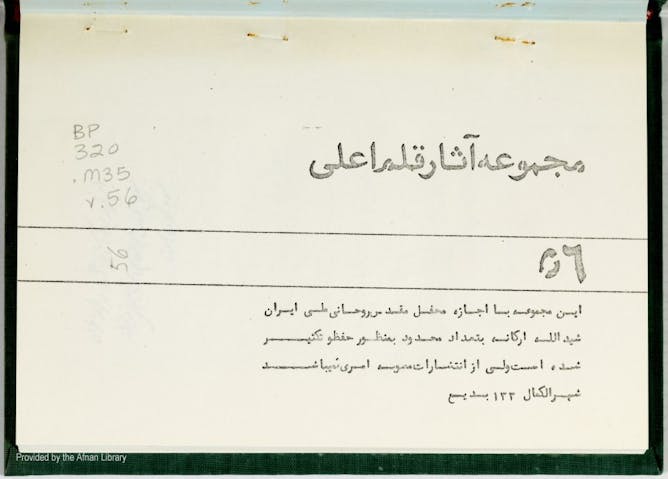 BP
320
.M35
v.56
56
مجموعه آثار قلم اعلی
۵۶
این مجموعه با اجازه محفل مقدس روحانی ملی ایران
شیدالله ارکانه بتعداد محدود بمنظور حفظ و تکثیر
شده است ولی از انتشارات مصوبه امری نمیباشد
شهرالکمال ۱۳۳ بدیع
Provided by the Afnan Library